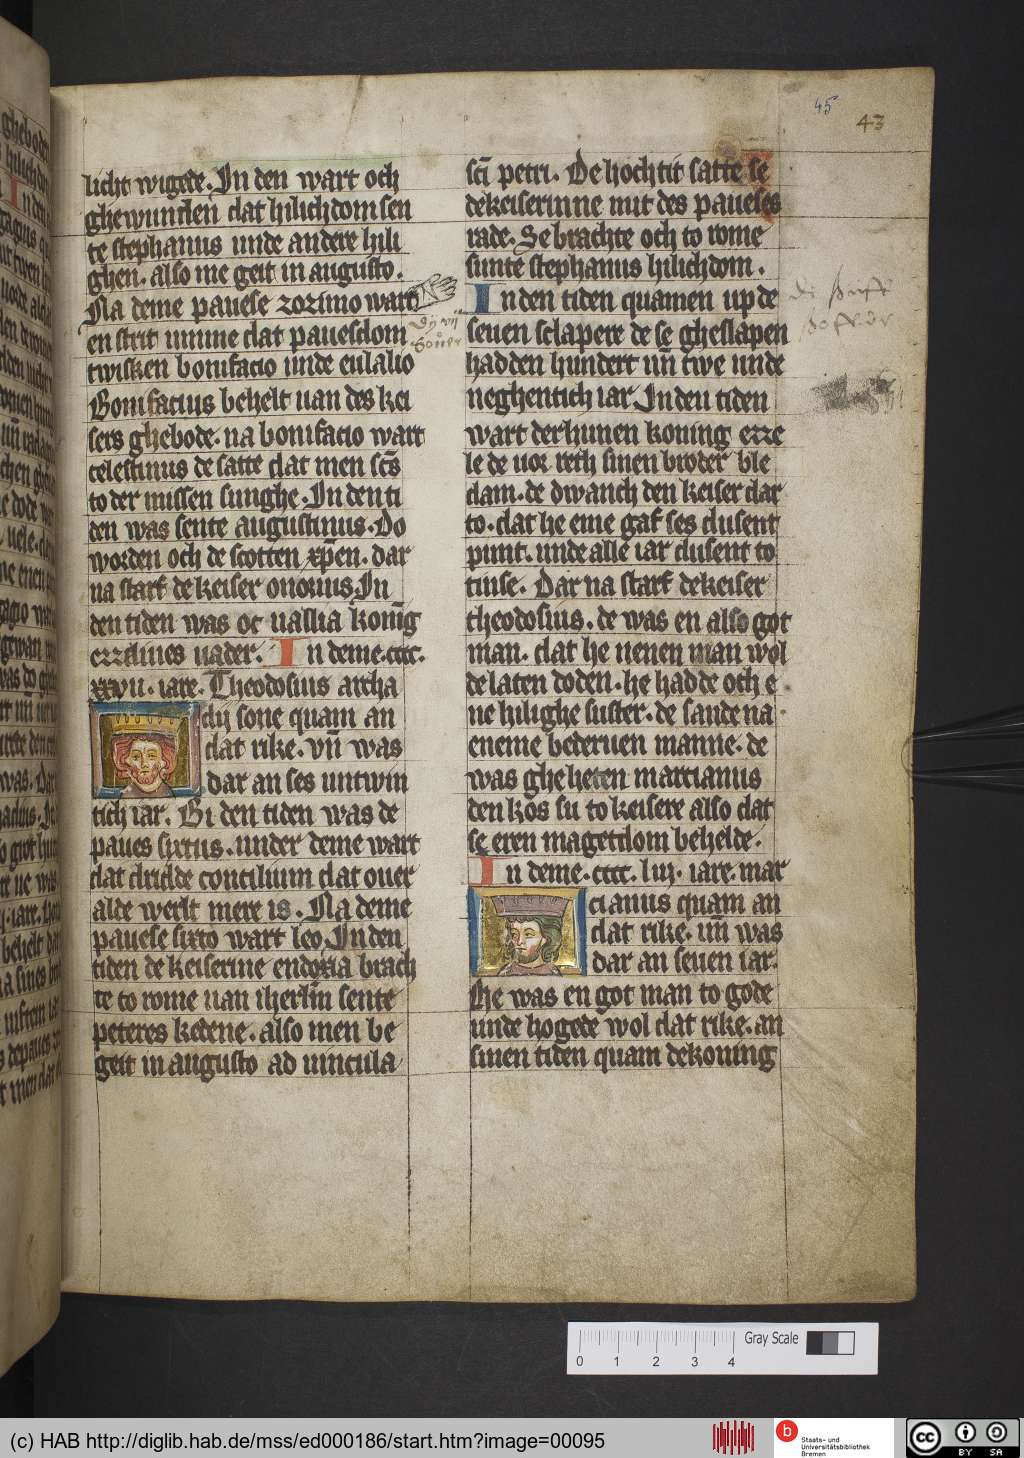 45
43
licht wigede. In den wart och
ghewunden dat hilichdom sen
te stephanus unde andere hili
ghen. also me geit in augusto.
Na deme pauese zozimo wart
en strit umme dat pauesdom
twisken bonifacio unde eulalio
Bonifacius behelt uan des kei
sers ghebode. na bonifacio wart
celestinus de satte dat men scs
to der missen sunghe. In den ti
den was sente augustinus. Do
worden och de scotten xpen. dar
na starf de keiser onorius. In
den tiden was oc nassia konig
ezzelines uader. In deme. cccc.
xxvii. iare. Theodosius archa
dij sone quam an
dat rike. vn was
dar an ses untwin
tich iar. Bi den tiden was de
paues sixtus. under deme wart
dat dridde concilium dat ouer
alde werlt mere is. Na deme
pauese sixto wart leo. In den
tiden de keiserine endoxia brach
te to rome uan iherlm sente
peteres ketene. also men be
geit in augusto ad uincula
sci petri. De hochtit satte se
de keiserinne mit des paueses
rade. Se brachte och to rome
sunte stephanus hilichdom.
In den tiden quamen up de
seuen sclapere de se gheslapen
hadden hundert un twe unde
neghentich iar. In den tiden
wart der hunen koning ezze
le de uor reth sinen broder ble
dam. de dwanch den keiser dar
to. dat he eme gaf ses dusent
punt. unde alle iar dusent to
tinse. Dar na starf de keiser
theodosius. de was en also got
man. dat he nenen man wol
de laten doden. he hadde och e
ne hilighe suster. de sande na
eneme bederuen manne. de
was ghe heten marcianus
den kos su to keisere also dat
se eren magetdom behelde.
In deme. cccc. liij. iare. mar
cianus quam an
dat rike. un was
dar an seuen iar.
He was en got man to gode
unde hogede wol dat rike. an
sinen tiden quam de koning
Gray Scale
0 1 2 3 4
(c) HAB http://diglib.hab.de/mss/ed000186/start.htm?image=00095
b
Staats- und
Universitätsbibliothek
Bremen
cc
BY SA